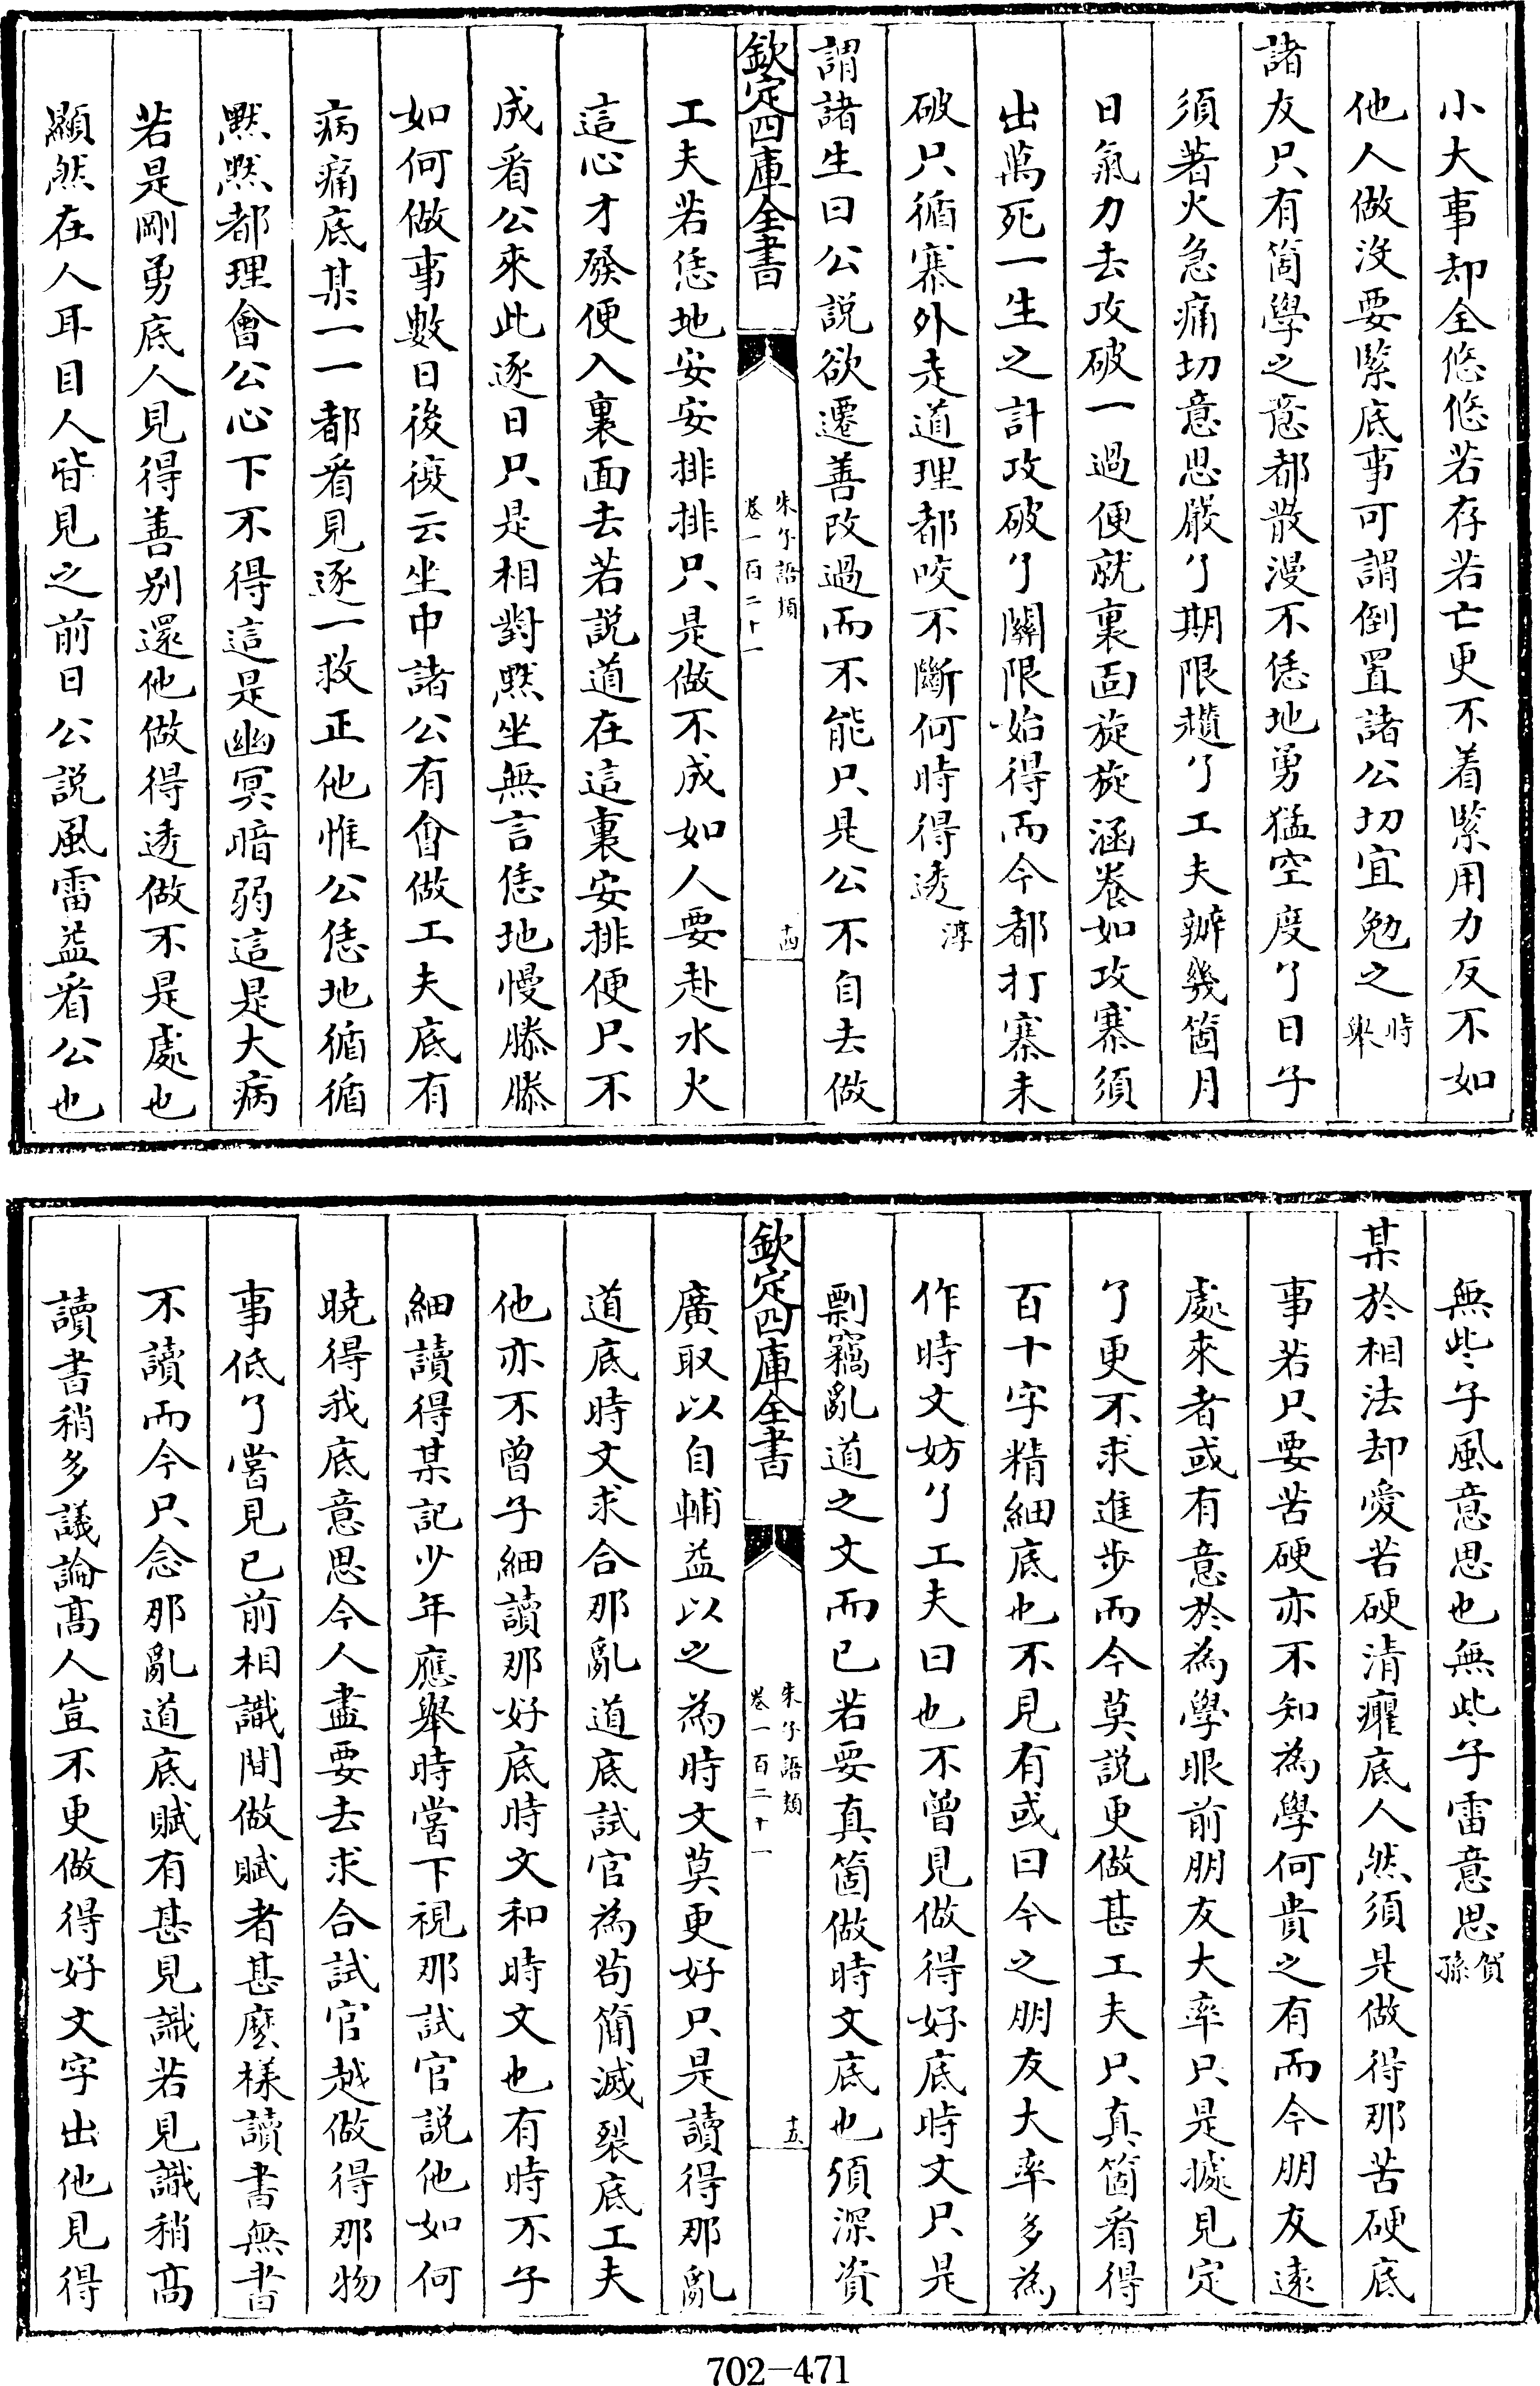 小大事却全悠悠若存若亡更不着緊用力反不如
他人做没要緊底事可謂倒置諸公切宜勉之時舉
諸友只有箇學之意都散漫不恁地勇猛空度了日子
須著火急痛切意思嚴了期限趲了工夫辦幾箇月
日氣力去攻破一過便就裏面旋旋涵養如攻寨須
出萬死一生之計攻破了關限始得而今都打寨未
破只循寨外走道理都咬不斷何時得透淳
謂諸生曰公説欲遷善改過而不能只是公不自去做
欽定四庫全書
朱子語類
卷一百二十一
十四
工夫若恁地安安排排只是做不成如人要赴水火
這心才發便入裏面去若説道在這裏安排便只不
成看公來此逐日只是相對黙坐無言恁地慢滕滕
如何做事數日後復云坐中諸公有會做工夫底有
病痛底某一一都看見逐一救正他惟公恁地循循
黙黙都理會公心下不得這是幽冥暗弱這是大病
若是剛勇底人見得善别還他做得透做不是處也
顯然在人耳目人皆見之前日公説風雷益看公也
無些子風意思也無些子雷意思賀孫
某於相法却愛苦硬清癯底人然須是做得那苦硬底
事若只要苦硬亦不知為學何貴之有而今朋友遠
處來者或有意於為學眼前朋友大率只是據見定
了更不求進步而今莫説更做甚工夫只真箇看得
百十字精細底也不見有或曰今之朋友大率多為
作時文妨了工夫曰也不曾見做得好底時文只是
剽竊亂道之文而已若要真箇做時文底也須深資
欽定四庫全書
朱子語類
卷一百二十一
十五
廣取以自輔益以之為時文莫更好只是讀得那亂
道底時文求合那亂道底試官為茍簡滅裂底工夫
他亦不曾子細讀那好底時文和時文也有時不子
細讀得某記少年應舉時嘗下視那試官説他如何
曉得我底意思今人盡要去求合試官越做得那物
事低了嘗見已前相識間做賦者甚麽様讀書無書
不讀而今只念那亂道底賦有甚見識若見識稍高
讀書稍多議論高人豈不更做得好文字出他見得
702-471